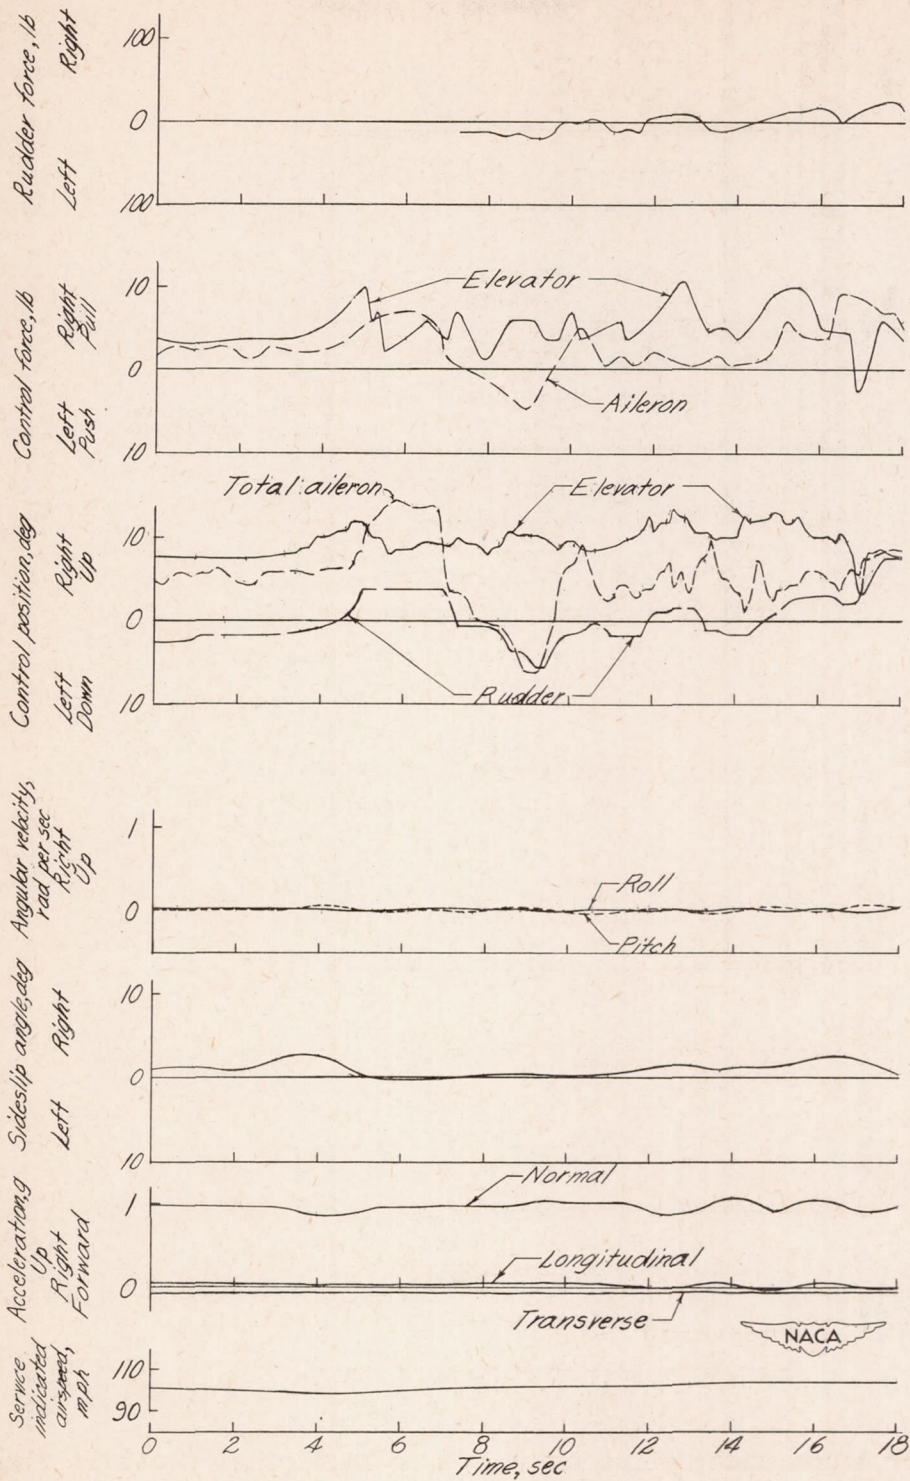 Rudder force, lb
Left Right
100
0
100
Control force, lb
Left Right
Push Pull
10
0
10
Elevator
Aileron
Control position, deg
Left Right
Down Up
10
0
10
Total aileron
Elevator
Rudder
Angular velocity,
rad per sec
Right
Up
1
0
Roll
Pitch
Sideslip angle, deg
Left Right
10
0
10
Acceleration, g
Up
Right
Forward
1
0
Normal
Longitudinal
Transverse
NACA
Service
indicated
airspeed,
mph
110
90
0 2 4 6 8 10 12 14 16 18
Time, sec